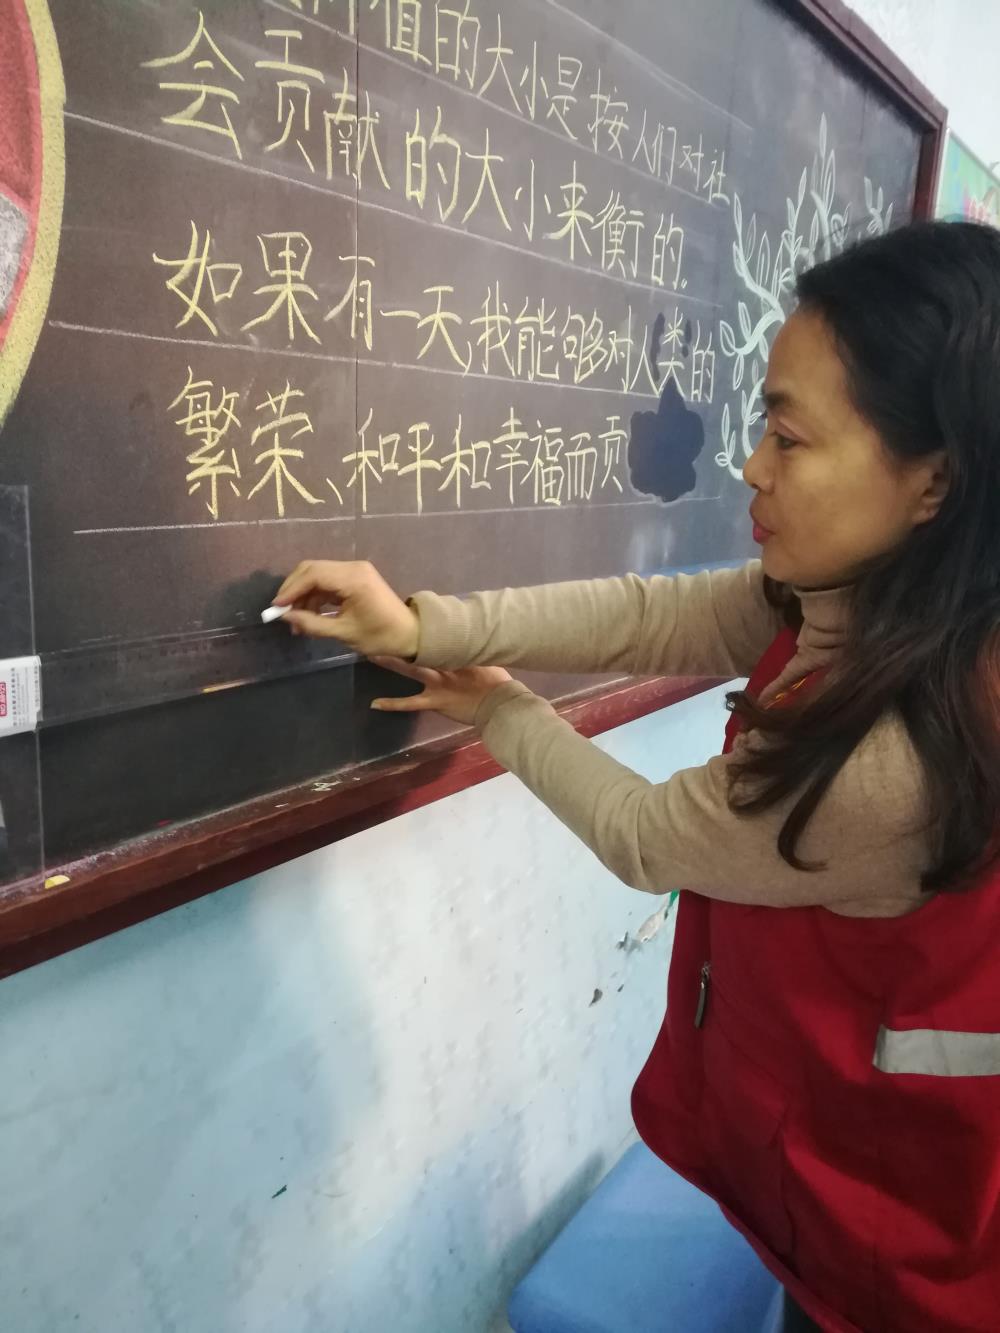 值的大小是按人们对社
会贡献的大小来衡的。
如果有一天,我能够对人类的
繁荣、和平和幸福而贡